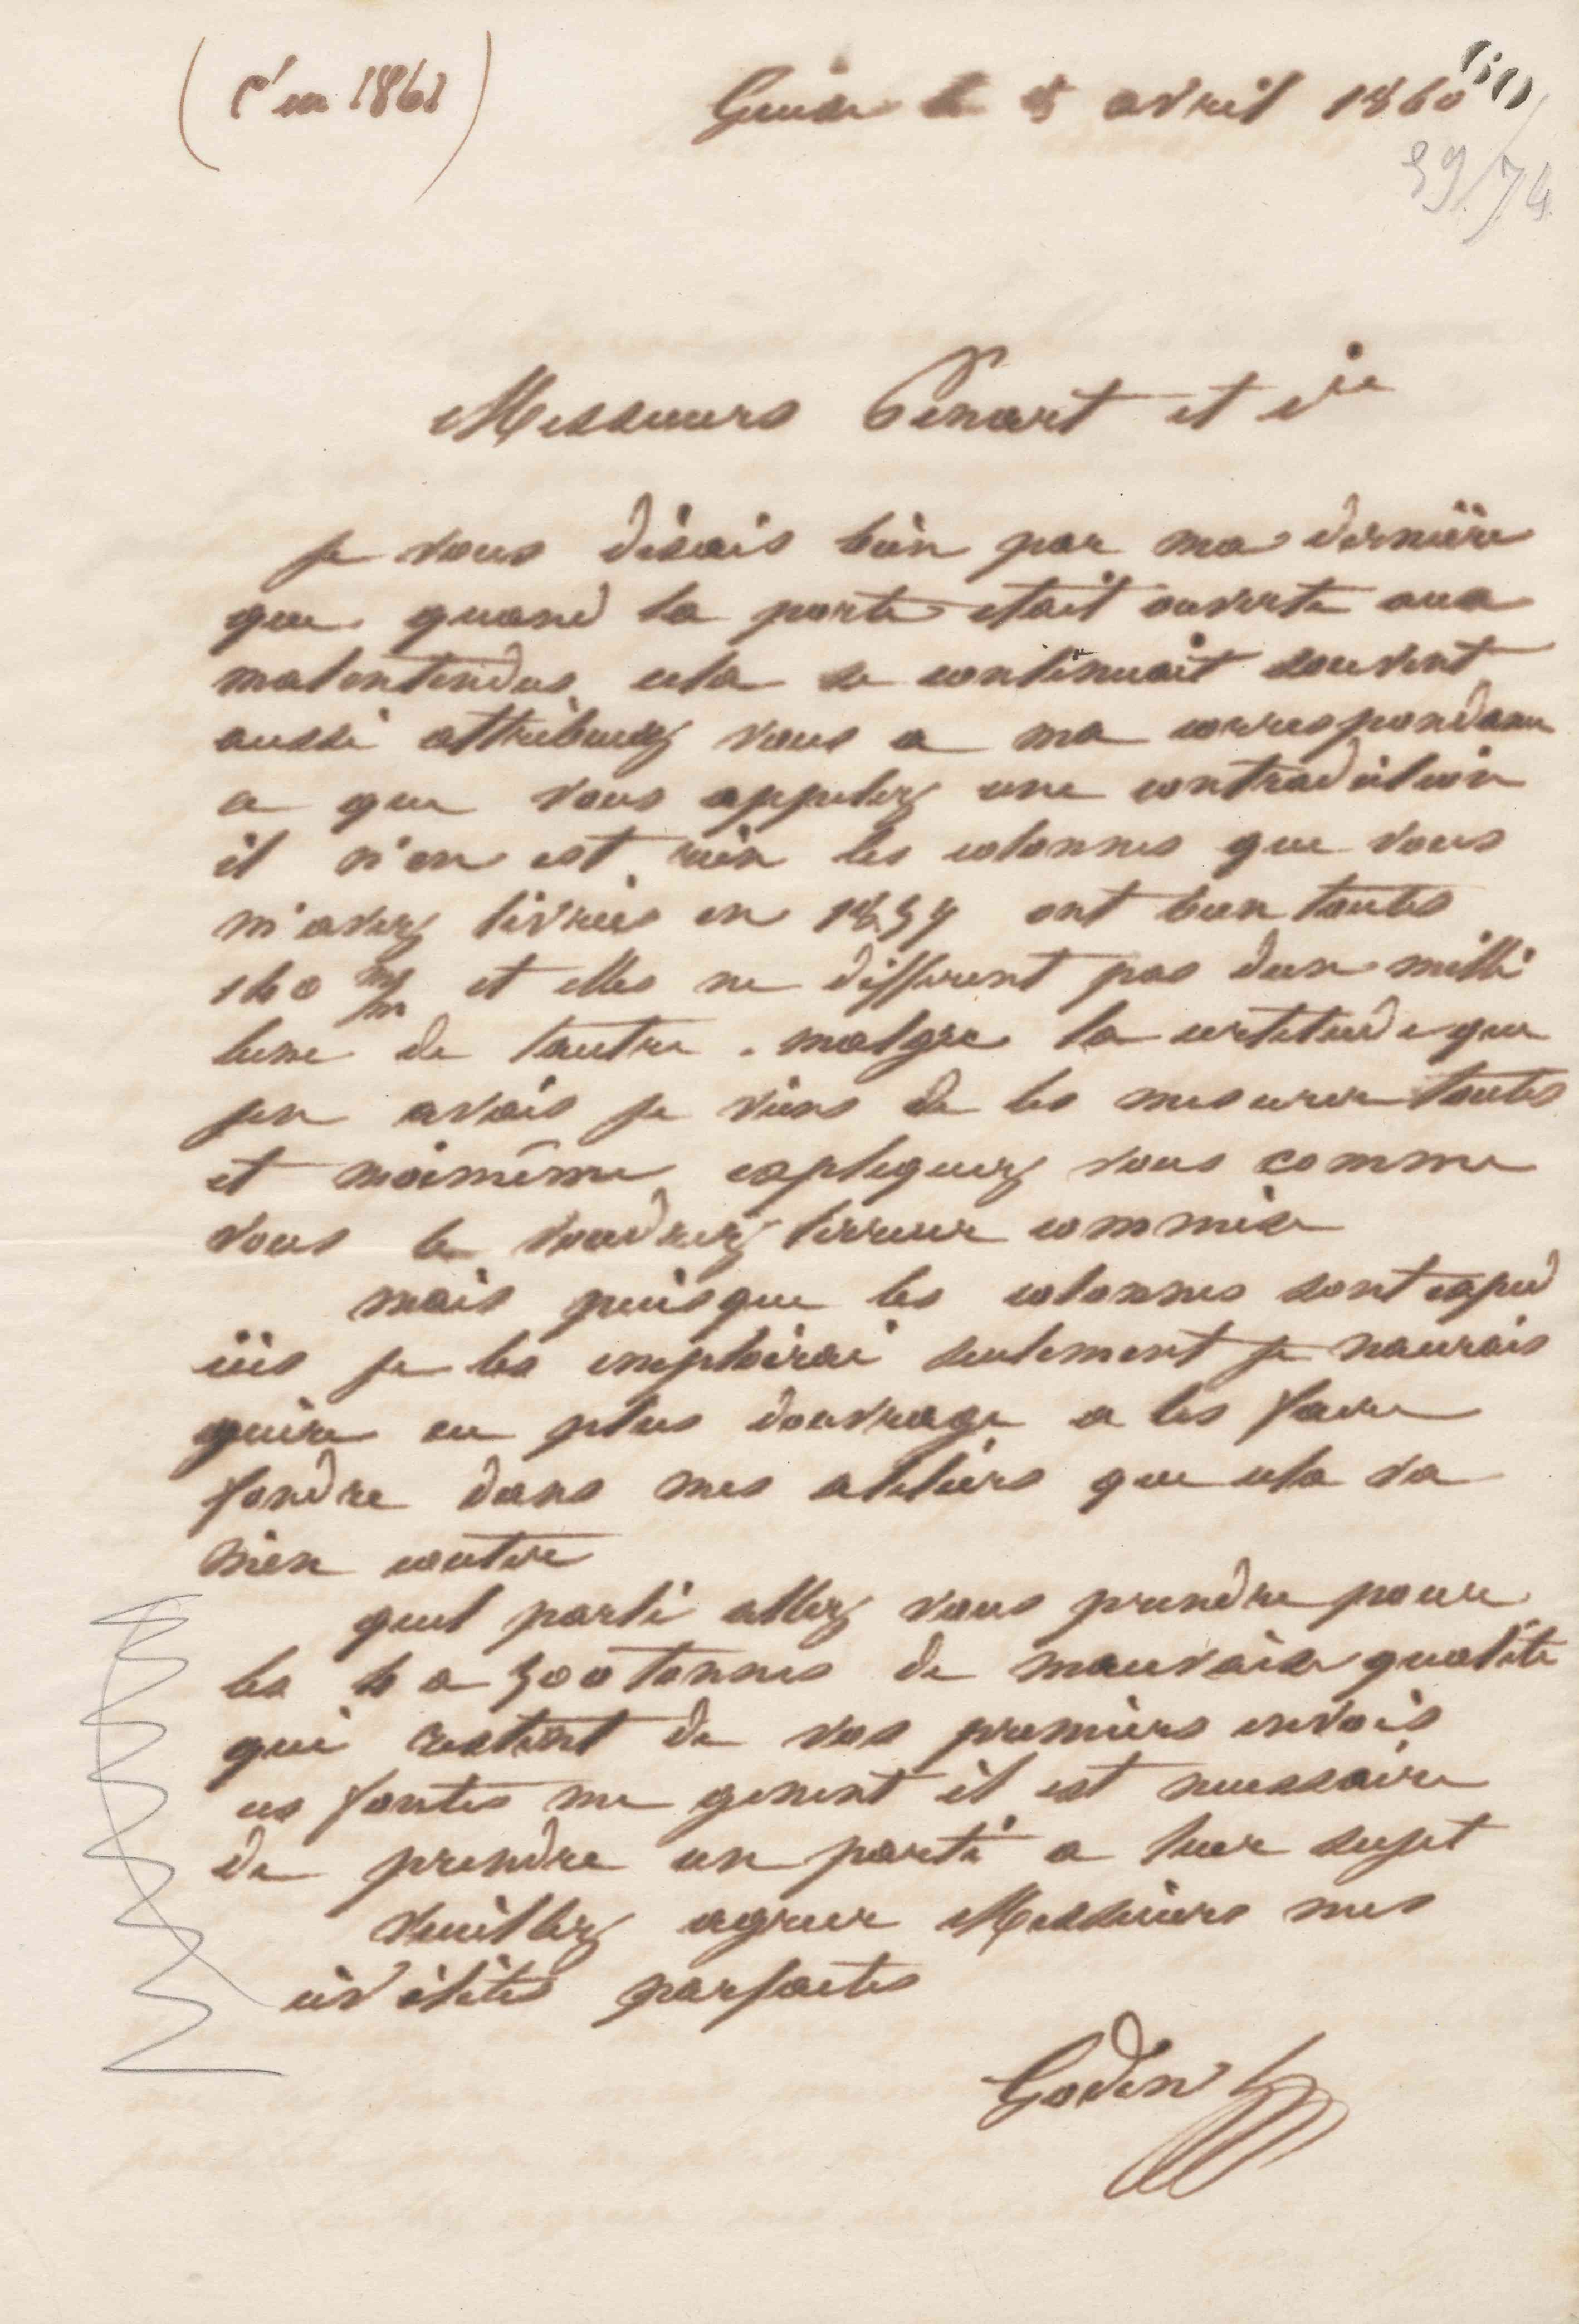 (c'en 1861)
Guise le 5 avril 1860
60
39/74
Messieurs Penart et Cie
je vous disais bien par ma dernière
que quand la porte etait ouverte aux
malentendus cela se continuait souvent
aussi attribuez vous a ma correspondance
ce que vous appelez une contradiction
il n'en est rien les colonnes que vous
m'avez livrées en 1859 ont bien toutes
160 m/m et elles ne different pas dun milli
lune de lautre . malgre la certitude que
jen avais je viens de les mesurer toutes
et moimême expliquez vous comme
vous le voudrez lerreur commise
mais puisque les colonnes sont exped
iées je les emploirai seulement je naurais
guère eu plus douvrage a les faire
fondre dans mes ateliers que cela va
men couter
quel parti allez vous prendre pour
les a 300 tonnes de mauvaise qualite
qui restent de vos premiers envois
ces fontes me genent il est necessaire
de prendre un parti a leur sujet
Veuillez agreer Messieurs mes
civilités parfaites
Godin